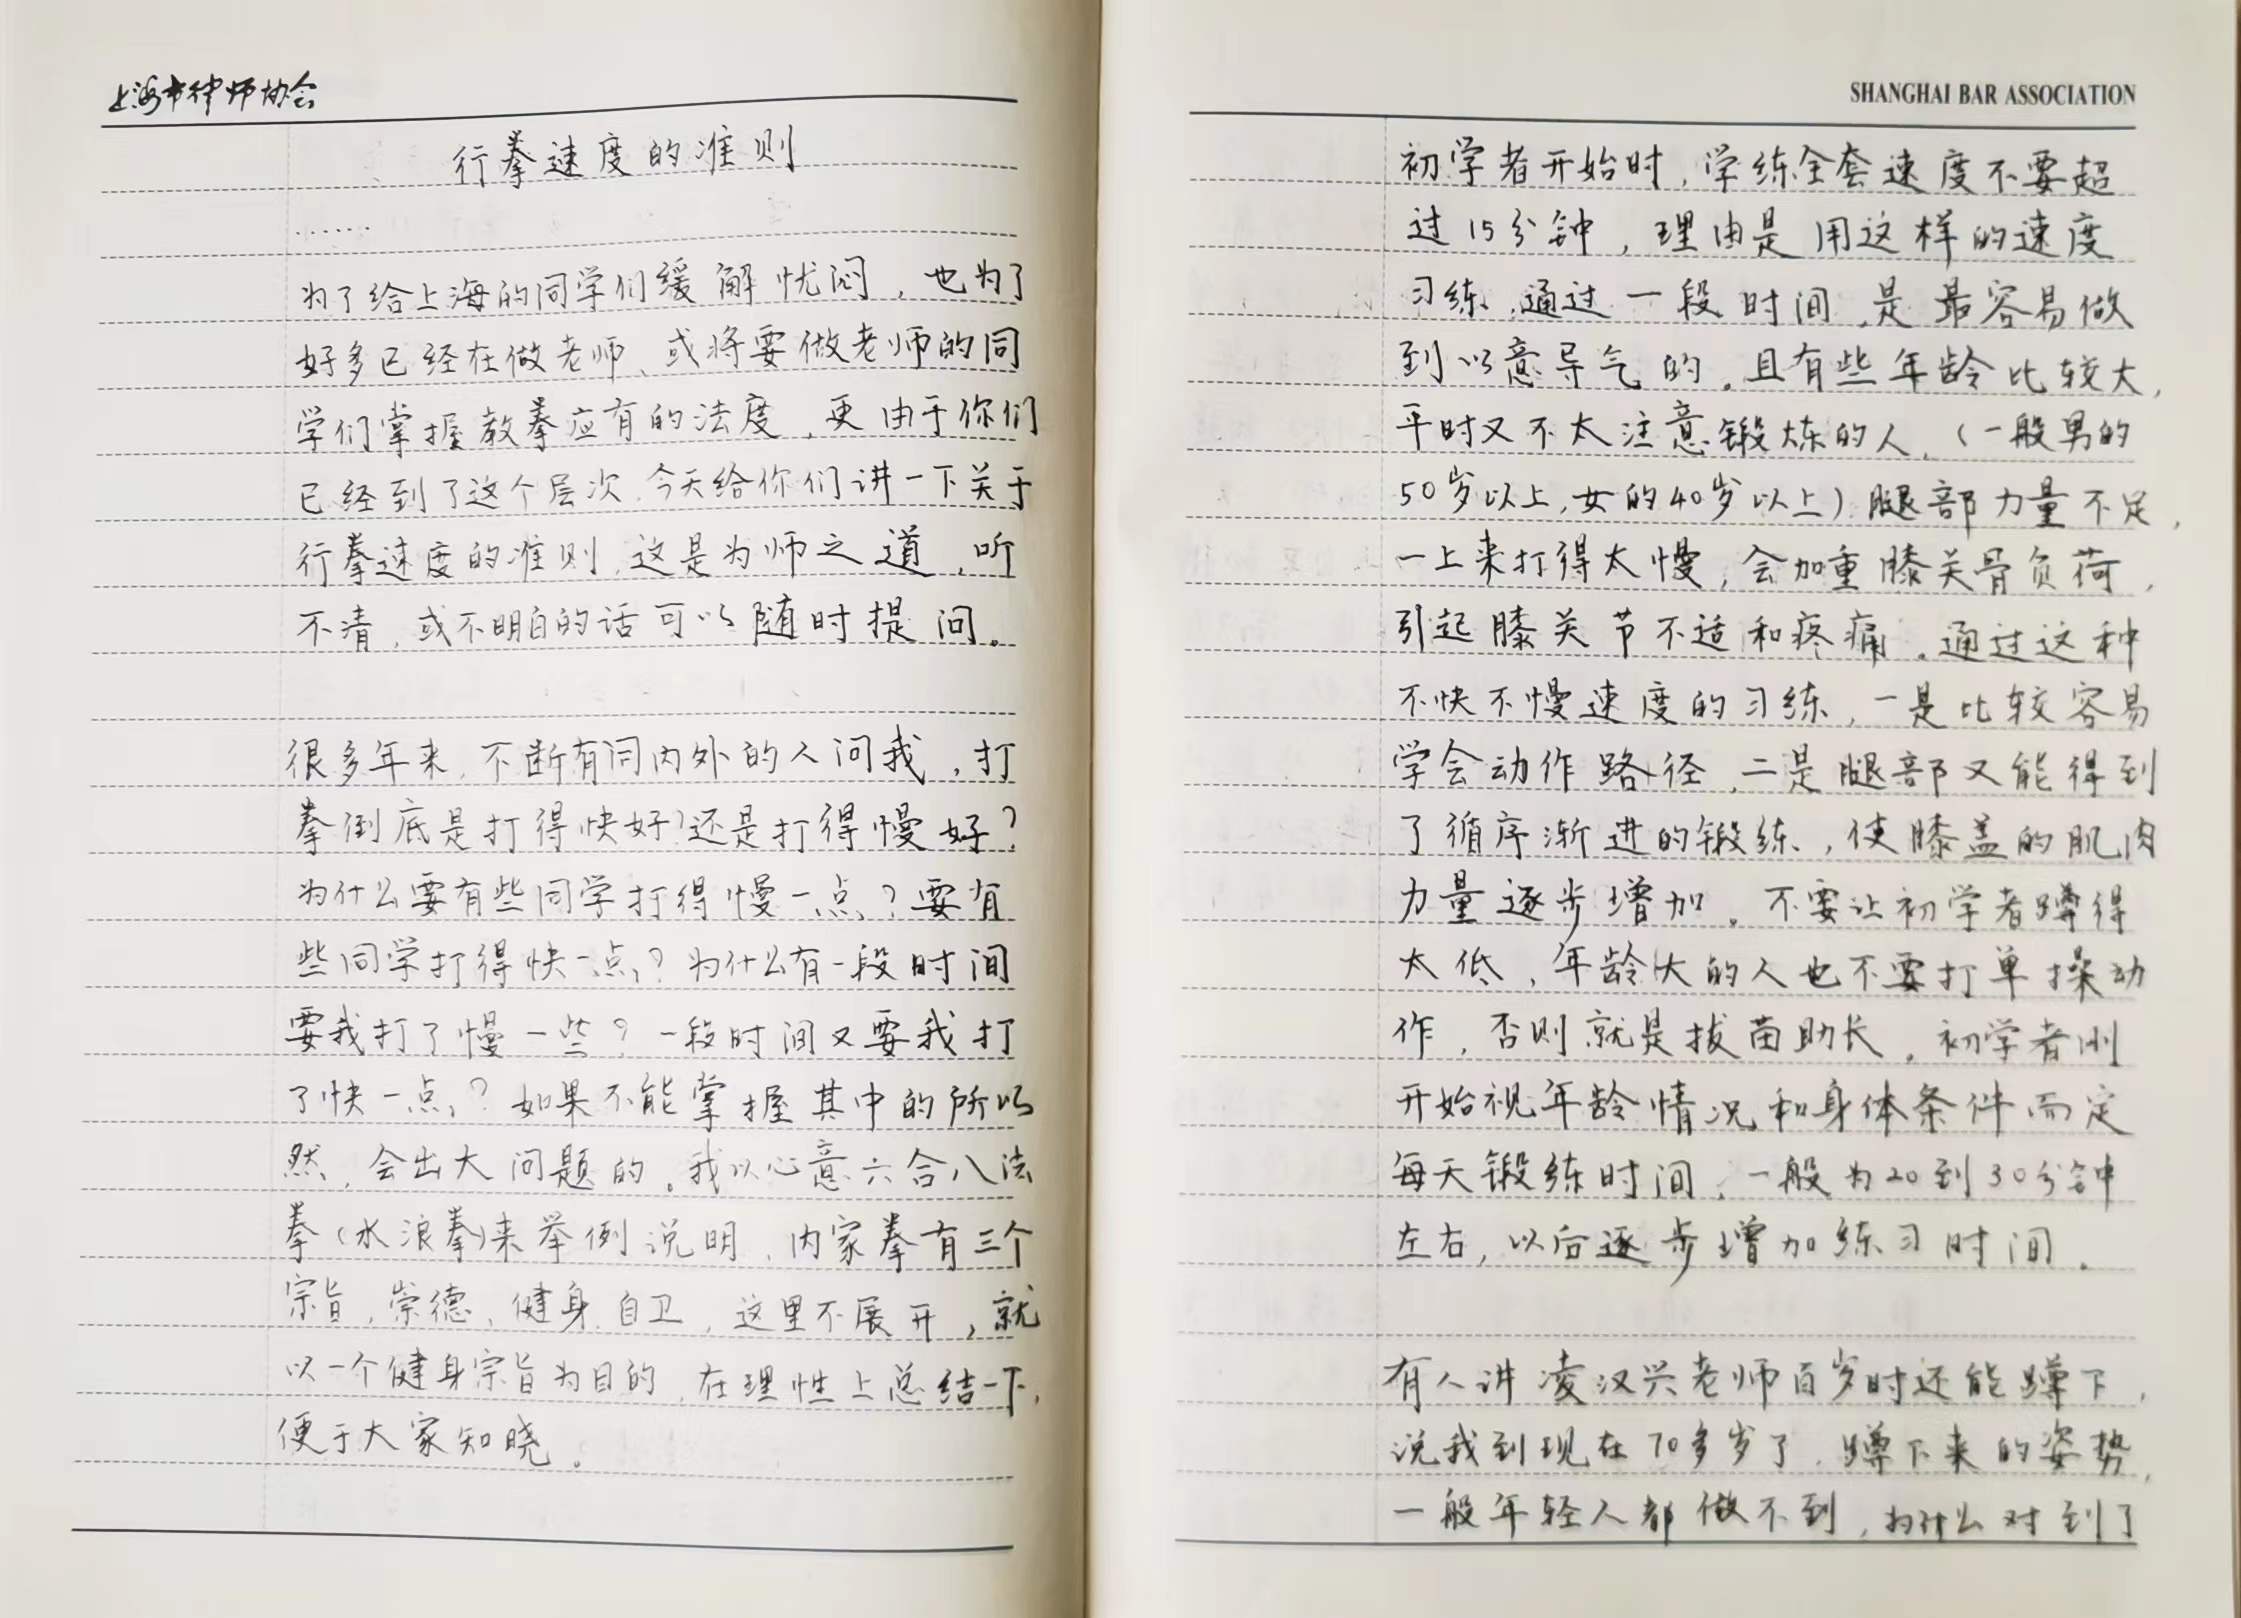 上海市律师协会
行拳速度的准则
.......
为了给上海的同学们缓解忧闷，也为了
好多已经在做老师、或将要做老师的同
学们掌握教拳应有的法度，更由于你们
已经到了这个层次，今天给你们讲一下关于
行拳速度的准则，这是为师之道，听
不清，或不明白的话可以随时提问。
很多年来，不断有同内外的人问我，打
拳倒底是打得快好？还是打得慢好？
为什么要有些同学打得慢一点？要有
些同学打得快一点？为什么有一段时间
要我打了慢一些？一段时间又要我打
了快一点？如果不能掌握其中的所以
然，会出大问题的。我以心意六合八法
拳（水浪拳）来举例说明，内家拳有三个
宗旨，崇德、健身、自卫，这里不展开，就
以一个健身宗旨为目的，在理性上总结一下，
便于大家知晓。
SHANGHAI BAR ASSOCIATION
初学者开始时，学练全套速度不要超
过15分钟，理由是用这样的速度
习练，通过一段时间，是最容易做
到以意导气的。且有些年龄比较大，
平时又不太注意锻炼的人，（一般男的
50岁以上，女的40岁以上）腿部力量不足，
一上来打得太慢，会加重膝关骨负荷，
引起膝关节不适和疼痛。通过这种
不快不慢速度的习练，一是比较容易
学会动作路径，二是腿部又能得到
了循序渐进的锻练，使膝盖的肌肉
力量逐步增加。不要让初学者蹲得
太低，年龄大的人也不要打单操动
作，否则就是拔苗助长，初学者刚
开始视年龄情况和身体条件而定
每天锻练时间，一般为20到30分钟
左右，以后逐步增加练习时间。
有人讲凌汉兴老师百岁时还能蹲下，
说我到现在70多岁了，蹲下来的姿势，
一般年轻人都做不到，为什么对到了